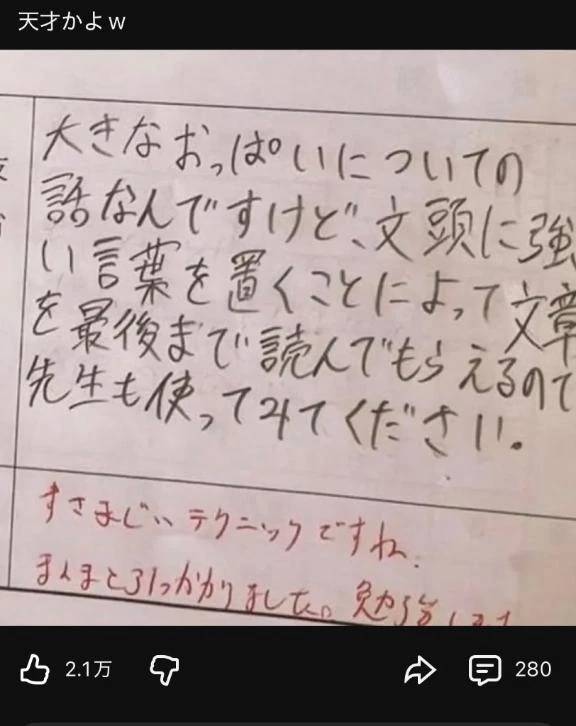 天才かよｗ
大きなおっぱいについての
話なんですけど、文頭に強
い言葉を置くことによって文章
を最後まで読んでもらえるので
先生も使ってみてください。
すさまじいテクニックですね。
まんまと引っかかりました。勉強
2.1万
280